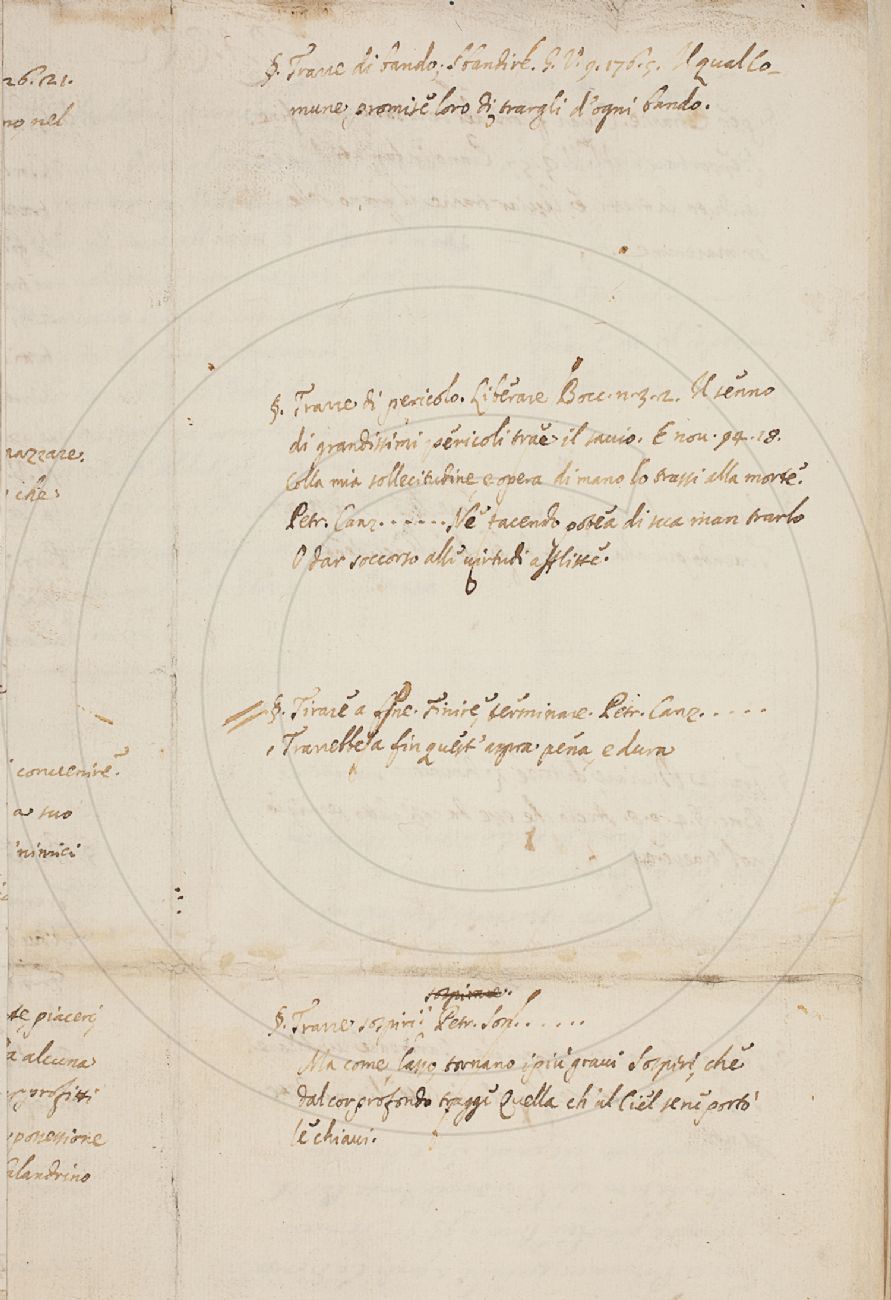 26. 21.
no nel
§. Trarre di bando, Sbandire. G. V. 9. 176. 5. Il qual Co-
mune promise loro di trargli d'ogni bando.
§. Trarre di pericolo. Liberare Bocc. n. 3. 2. Il senno
di grandissimi pericoli trae il savio. E nov. 94. 18.
Colla mia sollecitudine, e opera di mano lo trassi alla morte.
Petr. Canz. . . . . . . Né tacendo potea di sua man trarlo
O dar soccorso alle virtudi afflitte.
razzare.
che
§. Tirare a fine. Finire, terminare. Petr. Canz. . . . . .
Trarrebbe a fin quest' aspra pena, e dura
convenire.
a suo
nimici
sospirare.
§. Trarre sospiri. Petr. Son. . . . . .
Ma come lasso tornano i più gravi Sospiri, che
dal cor profondo tragge Quella ch' al Ciel se ne portò
le chiavi.
te, piacerj
a alcuna
profitti
possessione
alandrino